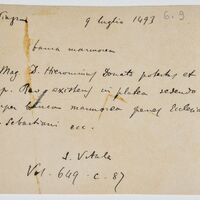 9 luglio 1493
6.9
banca marmorea
Mag. D. Hieronimus Donato potestas et
p. Rav. existens in platea sedendo
super bancum marmoreum penes Ecclesia
Sebastiani ecc.
S. Vitale
Vol. 649. c. 87